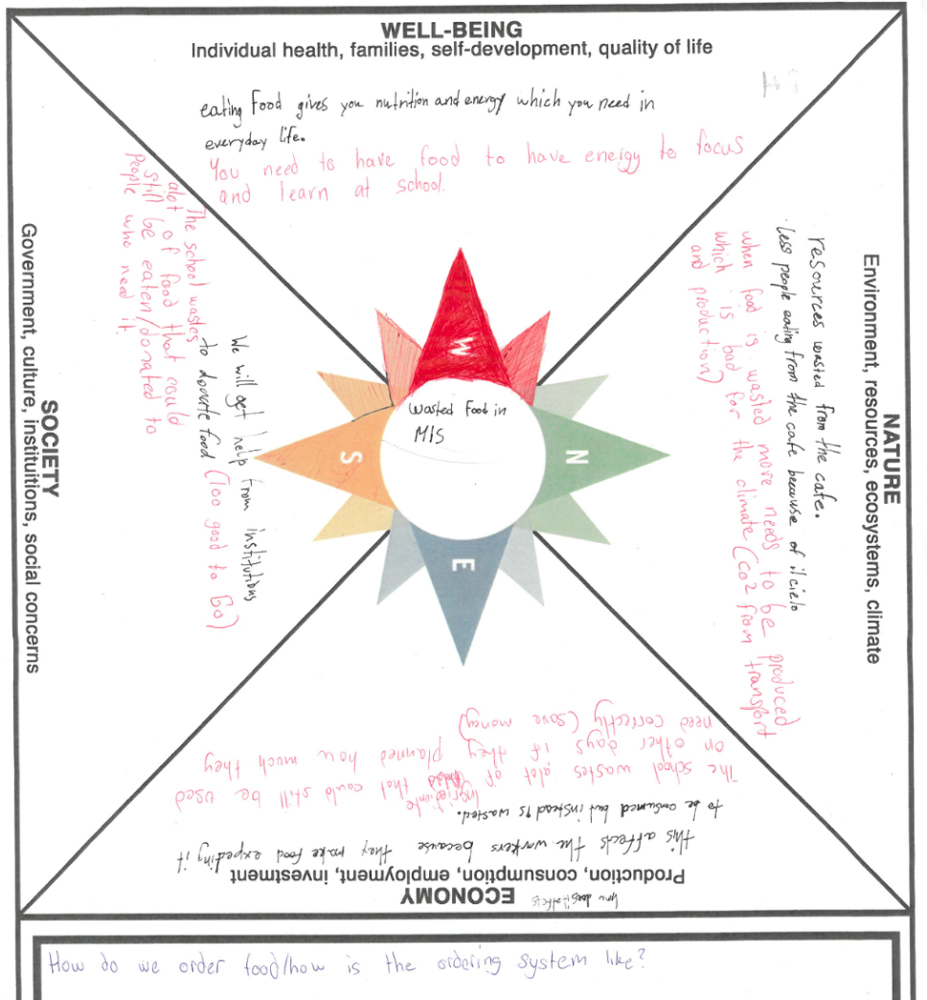 WELL-BEING
Individual health, families, self-development, quality of life
eating food gives you nutrition and energy which you need in
everyday life.
You need to have food to have energy to focus
and learn at school.
NATURE
Environment, resources, ecosystems, climate
resources wasted from the cafe.
less people eating from the cafe because of il cielo
when food is wasted more needs to be produced
which is bad for the climate (Co2 from transport
and production)
W
N
E
S
Wasted Food in
MIS
SOCIETY
Government, culture, instituitions, social concerns
We will get help from institutions
to donate food (Too good to Go)
The school wastes
alot of food that could
still be eaten/donated to
people who need it.
ECONOMY
Production, consumption, employment, investment
this affects the workers because they make food expeding it
to be consumed but instead is wasted.
The school wastes alot of that could still be used
on other days if they planned how much they
need correctly (save money)
How do we order food/how is the ordering system like?